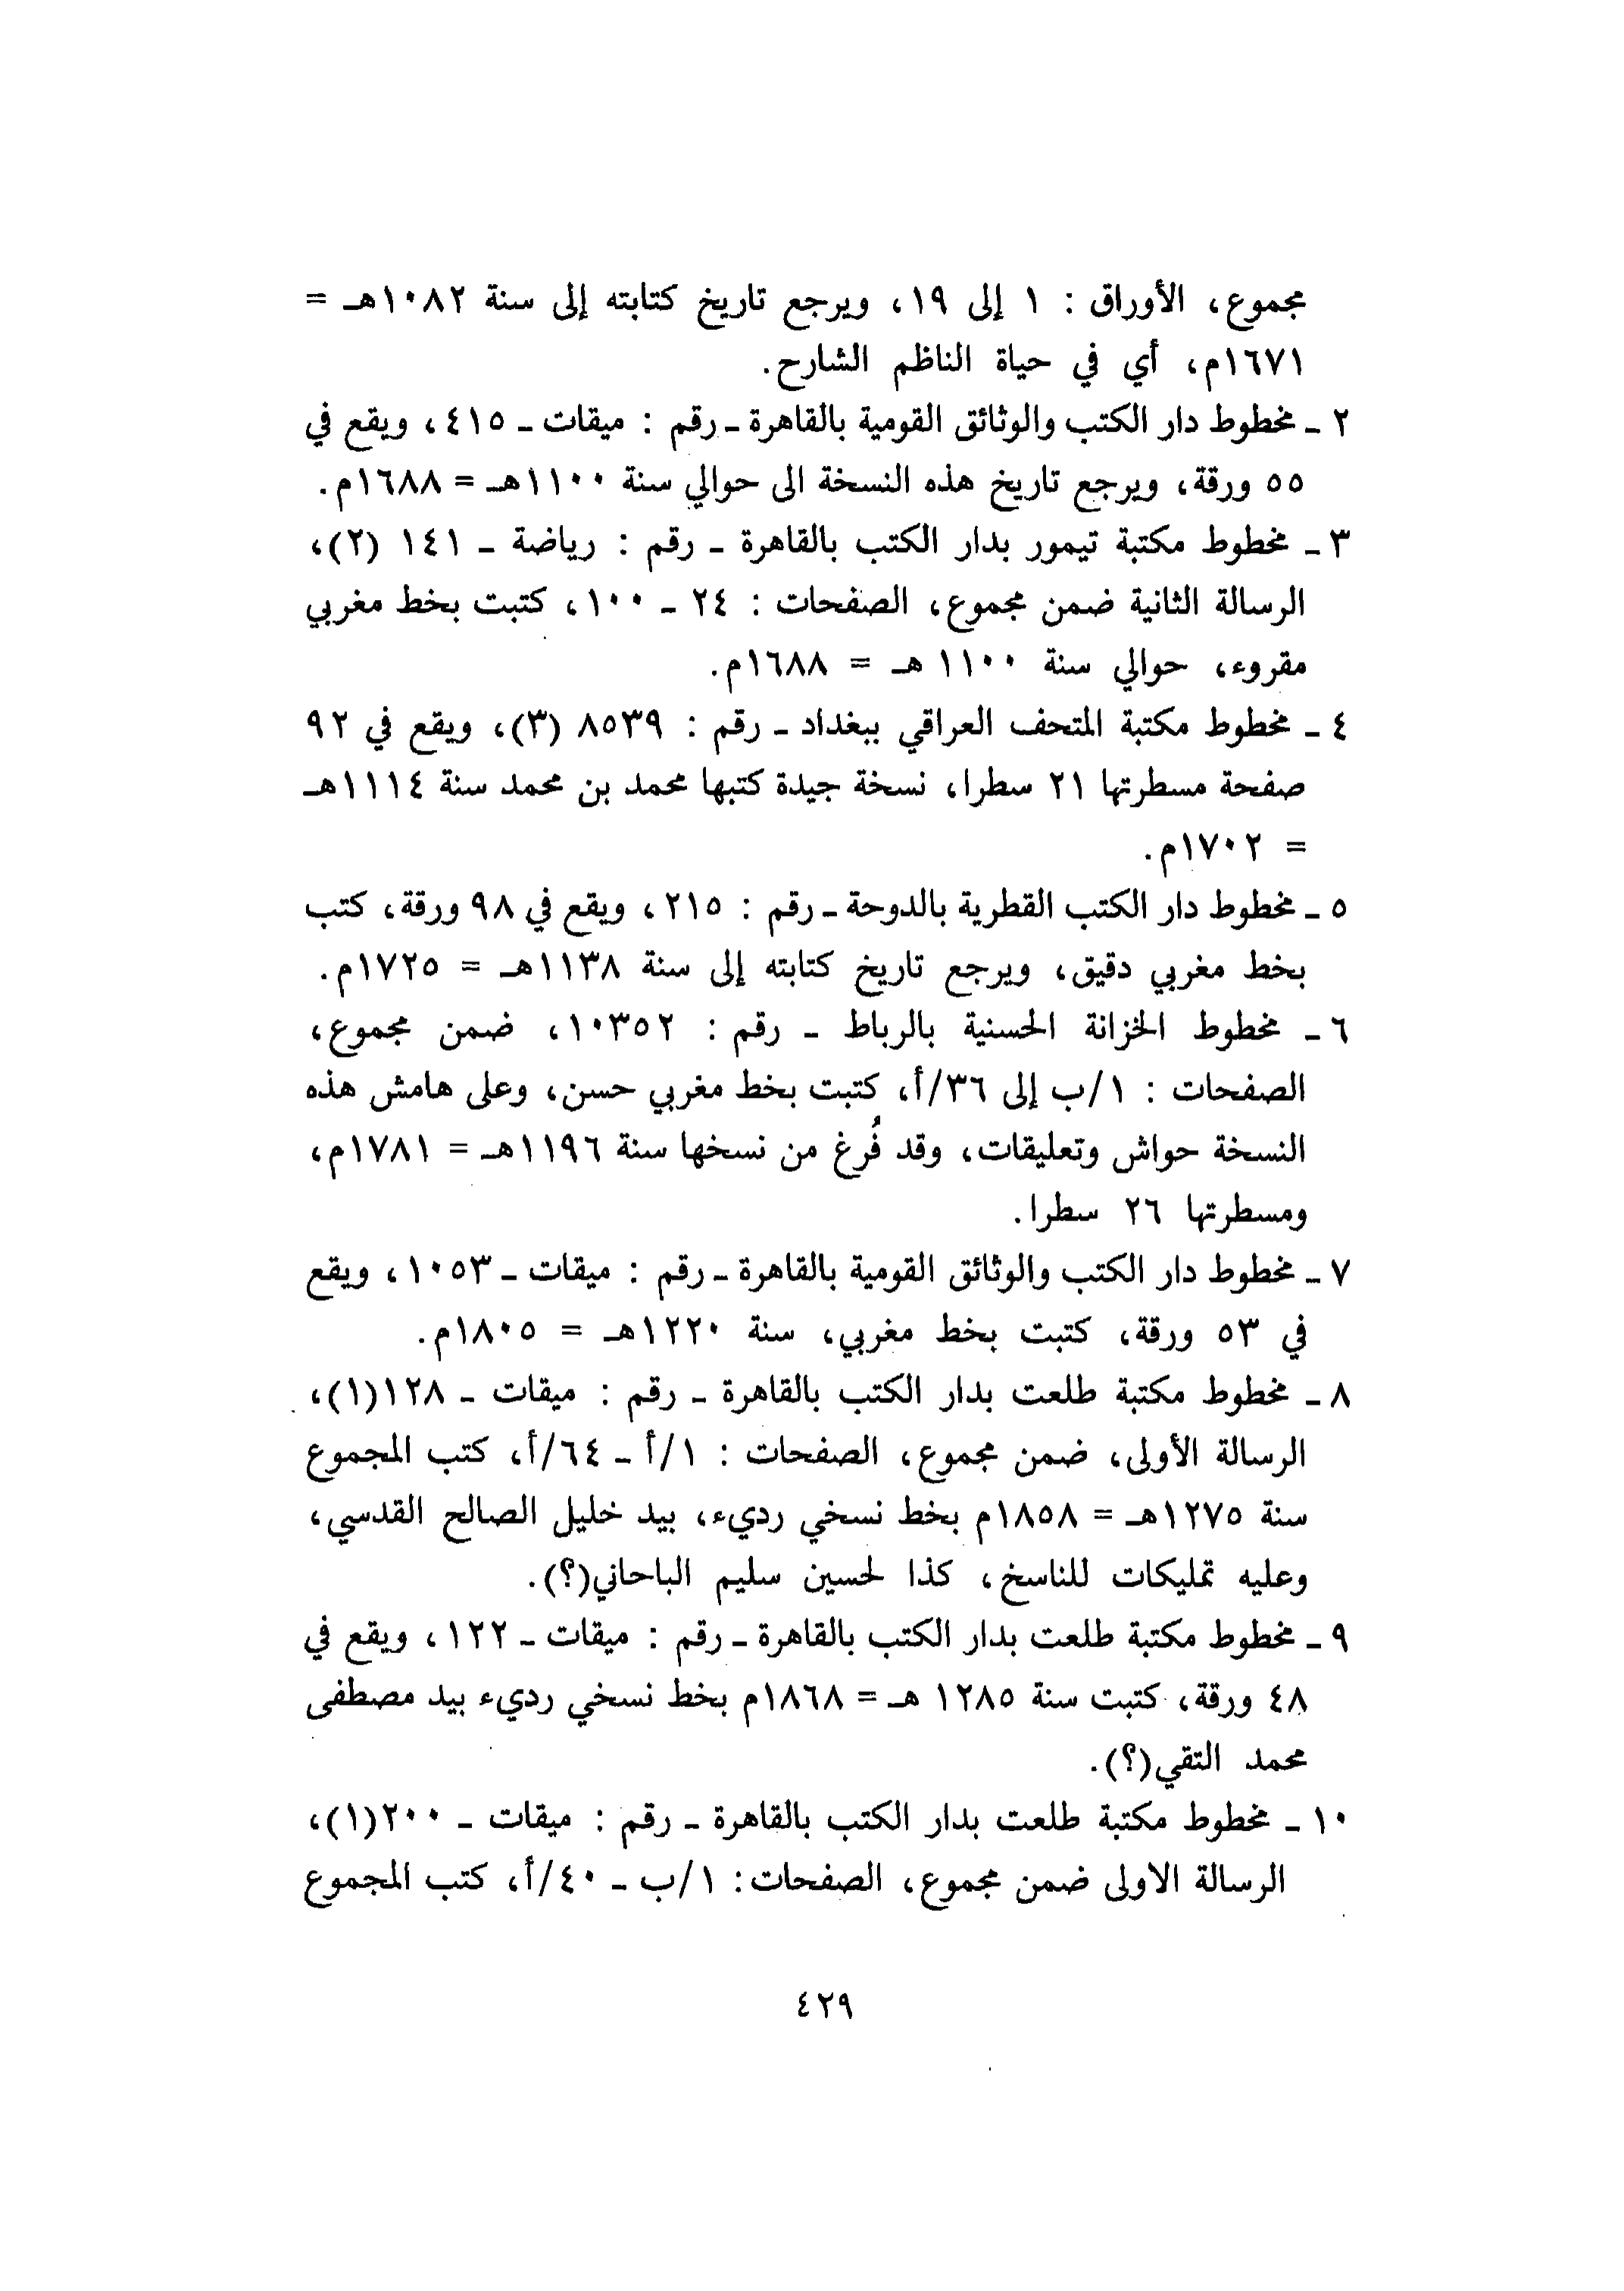 مجموع، الأوراق : ١ إلى ١٩، ويرجع تاريخ كتابته إلى سنة ١٠٨٢هـ =
١٦٧١م، أي في حياة الناظم الشارح.
٢ ـ مخطوط دار الكتب والوثائق القومية بالقاهرة ـ رقم : ميقات ـ ٤١٥، ويقع في
٥٥ ورقة، ويرجع تاريخ هذه النسخة الى حوالي سنة ١١٠٠هـ = ١٦٨٨م.
٣ ـ مخطوط مكتبة تيمور بدار الكتب بالقاهرة ـ رقم : رياضة ـ ١٤١ (٢)،
الرسالة الثانية ضمن مجموع، الصفحات : ٢٤ ـ ١٠٠، كتبت بخط مغربي
مقروء، حوالي سنة ١١٠٠ هـ = ١٦٨٨م.
٤ ـ مخطوط مكتبة المتحف العراقي ببغداد ـ رقم : ٨٥٣٩ (٣)، ويقع في ٩٢
صفحة مسطرتها ٢١ سطرا، نسخة جيدة كتبها محمد بن محمد سنة ١١١٤هـ
= ١٧٠٢م.
٥ ـ مخطوط دار الكتب القطرية بالدوحة ـ رقم : ٢١٥، ويقع في ٩٨ ورقة، كتب
بخط مغربي دقيق، ويرجع تاريخ كتابته إلى سنة ١١٣٨هـ = ١٧٢٥م.
٦ ـ مخطوط الخزانة الحسنية بالرباط ـ رقم : ١٠٣٥٢، ضمن مجموع،
الصفحات : ١/ب إلى ٣٦/أ، كتبت بخط مغربي حسن، وعلى هامش هذه
النسخة حواش وتعليقات، وقد فُرغ من نسخها سنة ١١٩٦هـ = ١٧٨١م،
ومسطرتها ٢٦ سطرا.
٧ ـ مخطوط دار الكتب والوثائق القومية بالقاهرة ـ رقم : ميقات ـ ١٠٥٣، ويقع
في ٥٣ ورقة، كتبت بخط مغربي، سنة ١٢٢٠هـ = ١٨٠٥م.
٨ ـ مخطوط مكتبة طلعت بدار الكتب بالقاهرة ـ رقم : ميقات ـ ١٢٨(١)،
الرسالة الأولى، ضمن مجموع، الصفحات : ١/أ ـ ٦٤/أ، كتب المجموع
سنة ١٢٧٥هـ = ١٨٥٨م بخط نسخي رديء، بيد خليل الصالح القدسي،
وعليه تمليكات للناسخ، كذا لحسين سليم الباحاني(؟).
٩ ـ مخطوط مكتبة طلعت بدار الكتب بالقاهرة ـ رقم : ميقات ـ ١٢٢، ويقع في
٤٨ ورقة، كتبت سنة ١٢٨٥ هـ = ١٨٦٨م بخط نسخي رديء بيد مصطفى
محمد التقي(؟).
١٠ ـ مخطوط مكتبة طلعت بدار الكتب بالقاهرة ـ رقم : ميقات ـ ٢٠٠(١)،
الرسالة الاولى ضمن مجموع، الصفحات: ١/ب ـ ٤٠/أ، كتب المجموع
٤٢٩